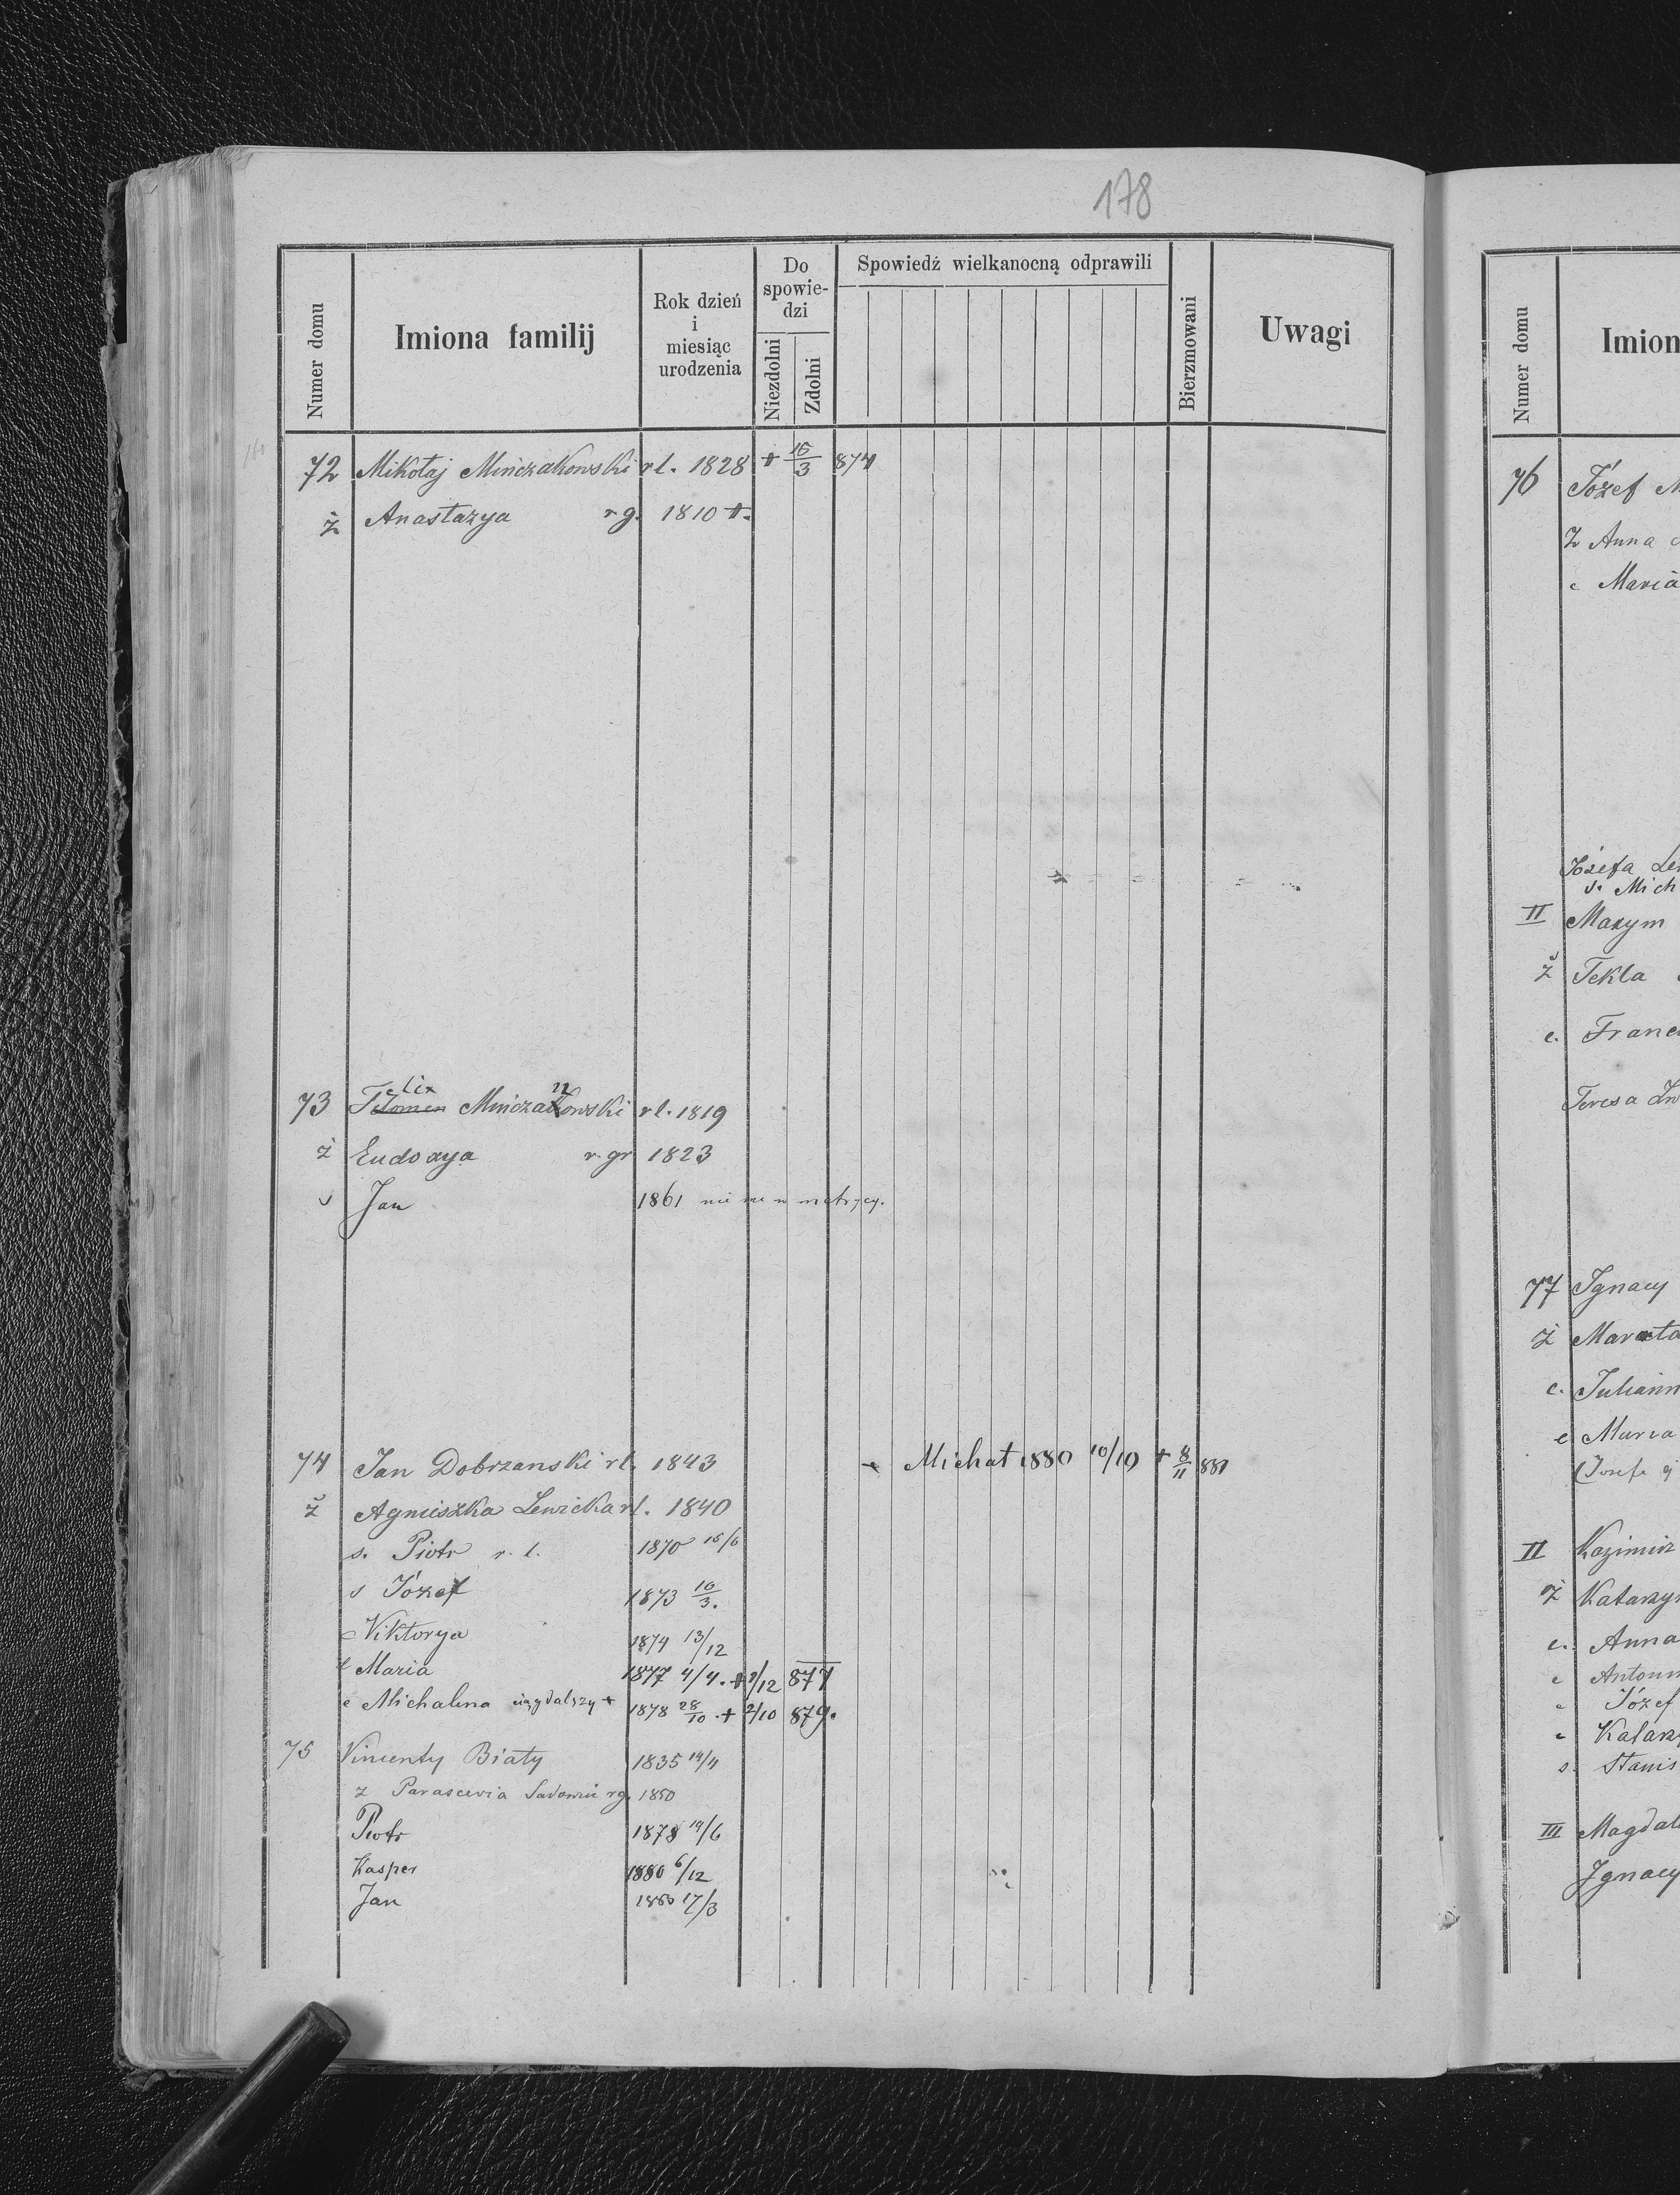 178
Numer domu
Imiona familij
Rok dzień
i
miesiąc
urodzenia
Do
spowie-
dzi
Niezdolni
Zdolni
Spowiedź wielkanocną odprawili
Bierzmowani
Uwagi
72 Mikołaj Mińczakowski rl. 1828 + 15/3 874
ż Anastazya rg. 1810 +.
73 Felix Mińczakowski rl. 1819
ż Eudoxya r. gr 1823
s Jan 1861 nie ma w metrycy.
74 Jan Dobrzanski rl. 1843 Michał 1880 10/10 + 8/11 881
ż Agnieszka Lewicka rl. 1840
s. Piotr r. l. 1870 15/6
s Józef 1873 10/3.
c Viktorya 1874 13/12
c Maria 1877 4/4. + 9/12 877
c Michalina ciągdalszy + 1878 28/10 + 2/10 879.
75 Vincenty Biały 1835 19/4
ż Parascevia rg. 1850
Piotr 1878 19/6
Kasper 1880 6/12
Jan 1880 17/3
Numer domu
Imion
76 Józef M
Ż Anna
c Maria
Józefa Le
s. Mich
II Maxym
ż Tekla
c. Franc
Teresa
77 Ignacy
ż Marta
c. Juliann
c Maria
II Kazimirz
ż Katarzy
c. Anna
c Antoni
c Józef
c Katarz
s. Stanis
III Magdal
Ignacy